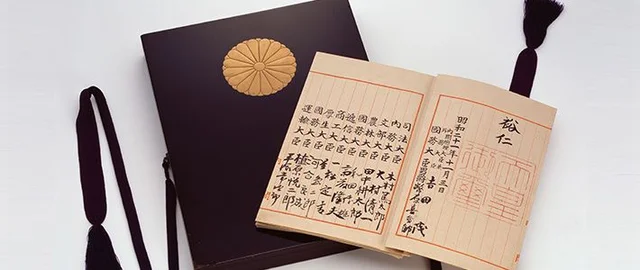 裕仁
天皇
御璽
昭和二十一年十一月三日
内閣総理大臣兼
外務大臣 吉田茂
国務大臣 男爵 幣原喜重郎
司法大臣 木村篤太郎
内務大臣 大村清一
文部大臣 田中耕太郎
農林大臣
国務大臣
逓信大臣
商工大臣
厚生大臣
国務大臣 植原悦二郎
運輸大臣 平塚常次郎